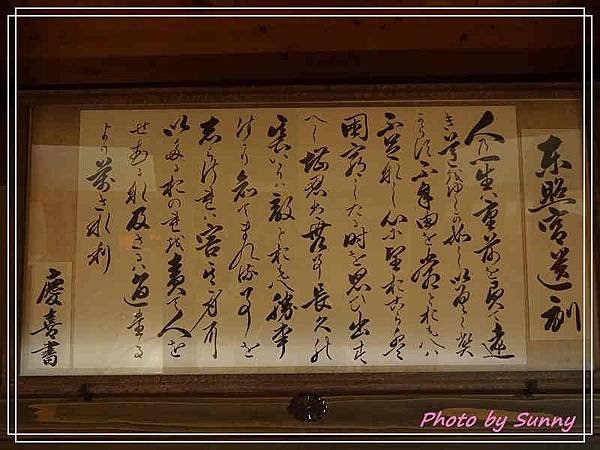 東照宮遺訓
人の一生は重荷を負て遠
き道をゆくか如しいそくへ
からす不自由を常とおもへハ
不足なし心に望おこらハ
困窮したる時を思ひ出す
へし堪忍は無事長久の
基いかりハ敵とおもへ勝事
はかり知てまくる事を
しらされハ害其身に
いたるおのれを責て人を
せむるな及さるハ過たる
よりまされり
慶喜書
Photo by Sunny